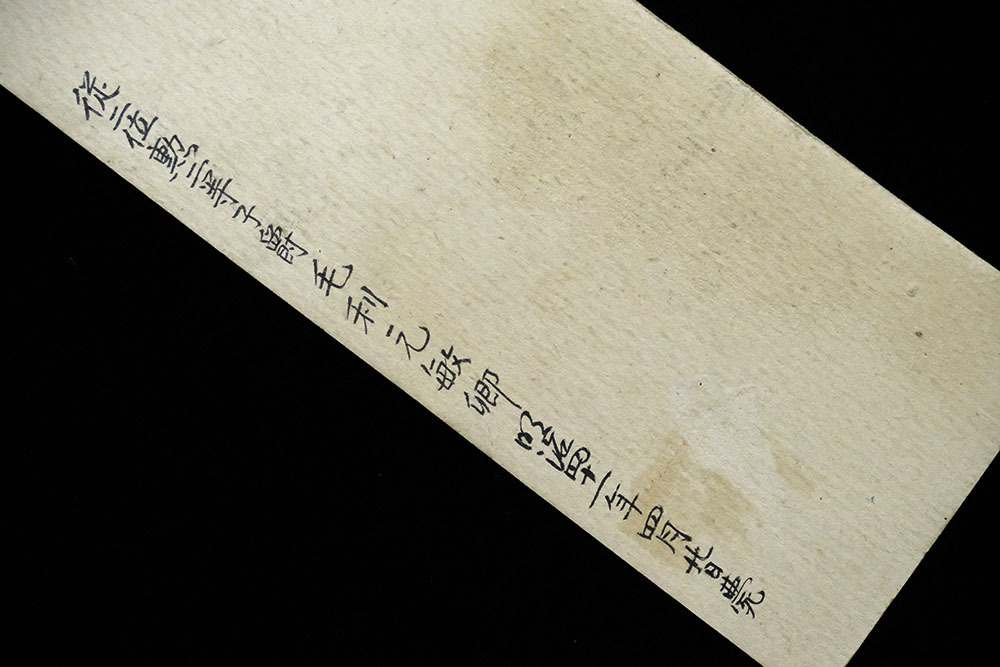 従二位勲三等子爵毛利元敏卿明治四十一年四月廿五日薨